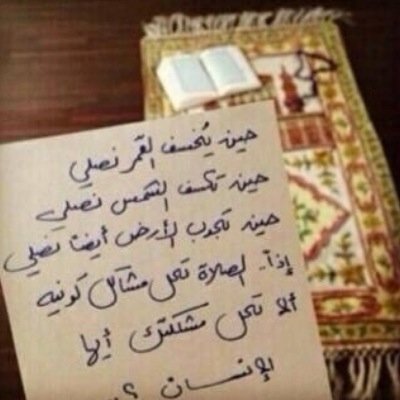 حين يُخسف القمر نصلي
حين تكسف الشمس نصلي
حين تجدب الأرض أيضاً نصلي
إذاً.. الصلاة تحل مشاكل كونيه
ألا تحل مشكلتك أيها
الإنسان ؟